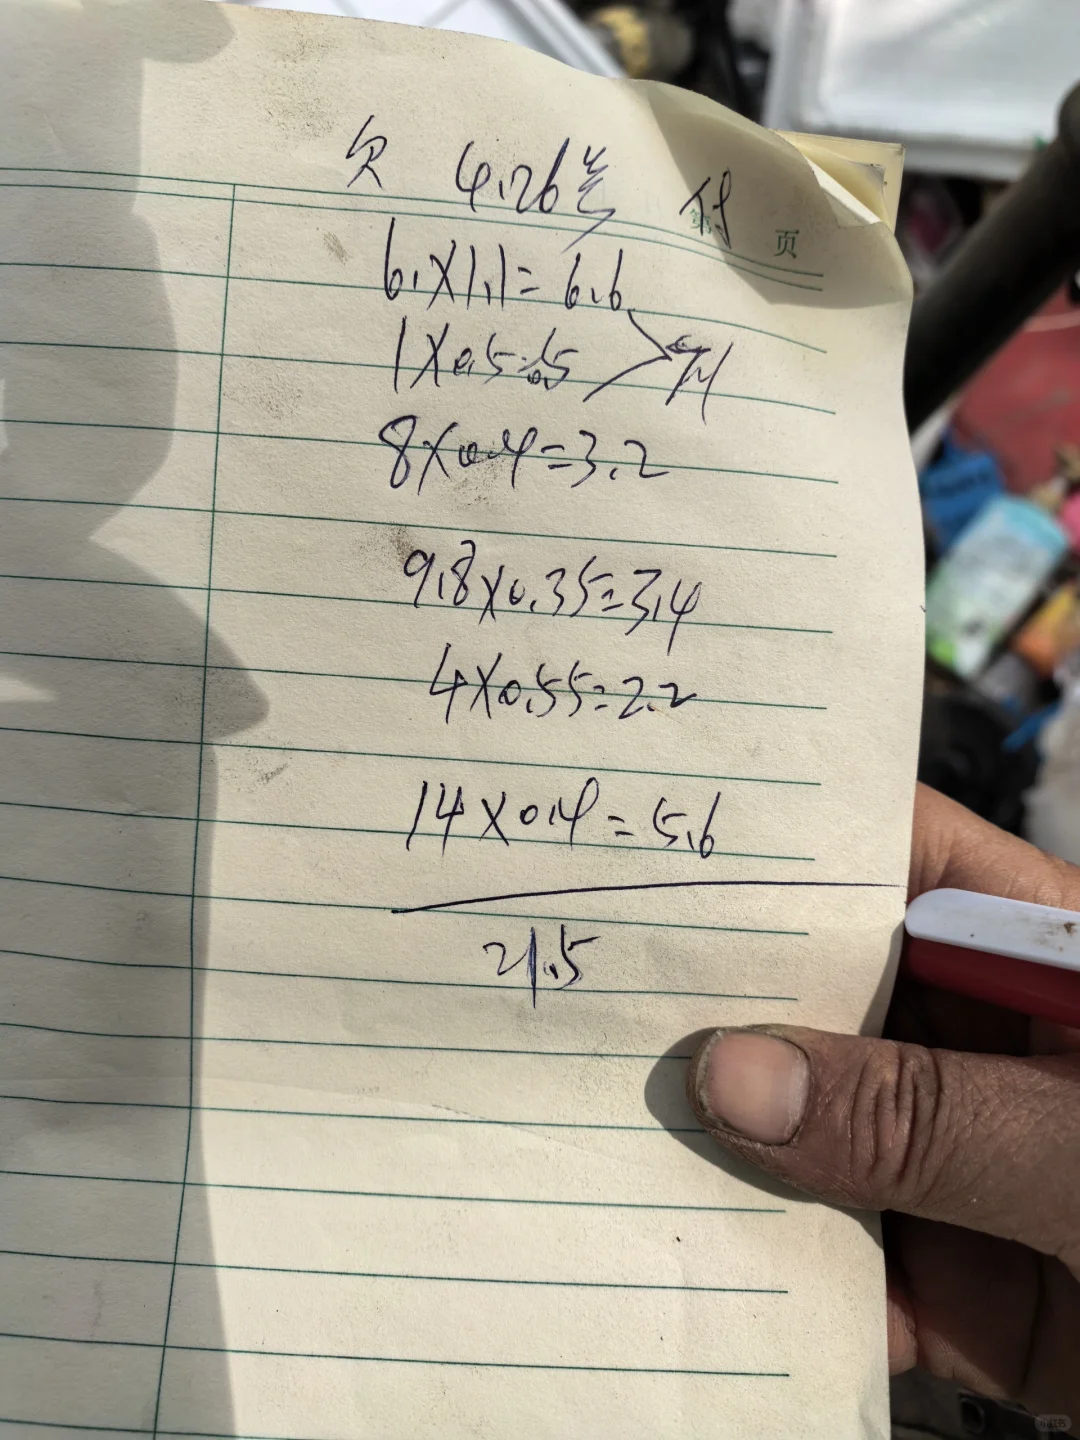 欠 4.26号 付
第 页
6.×1.1=6.6
1×0.5=0.5 7.1
8×0.4=3.2
9.8×0.35=3.4
4×0.55=2.2
14×0.4=5.6
21.5
小红书